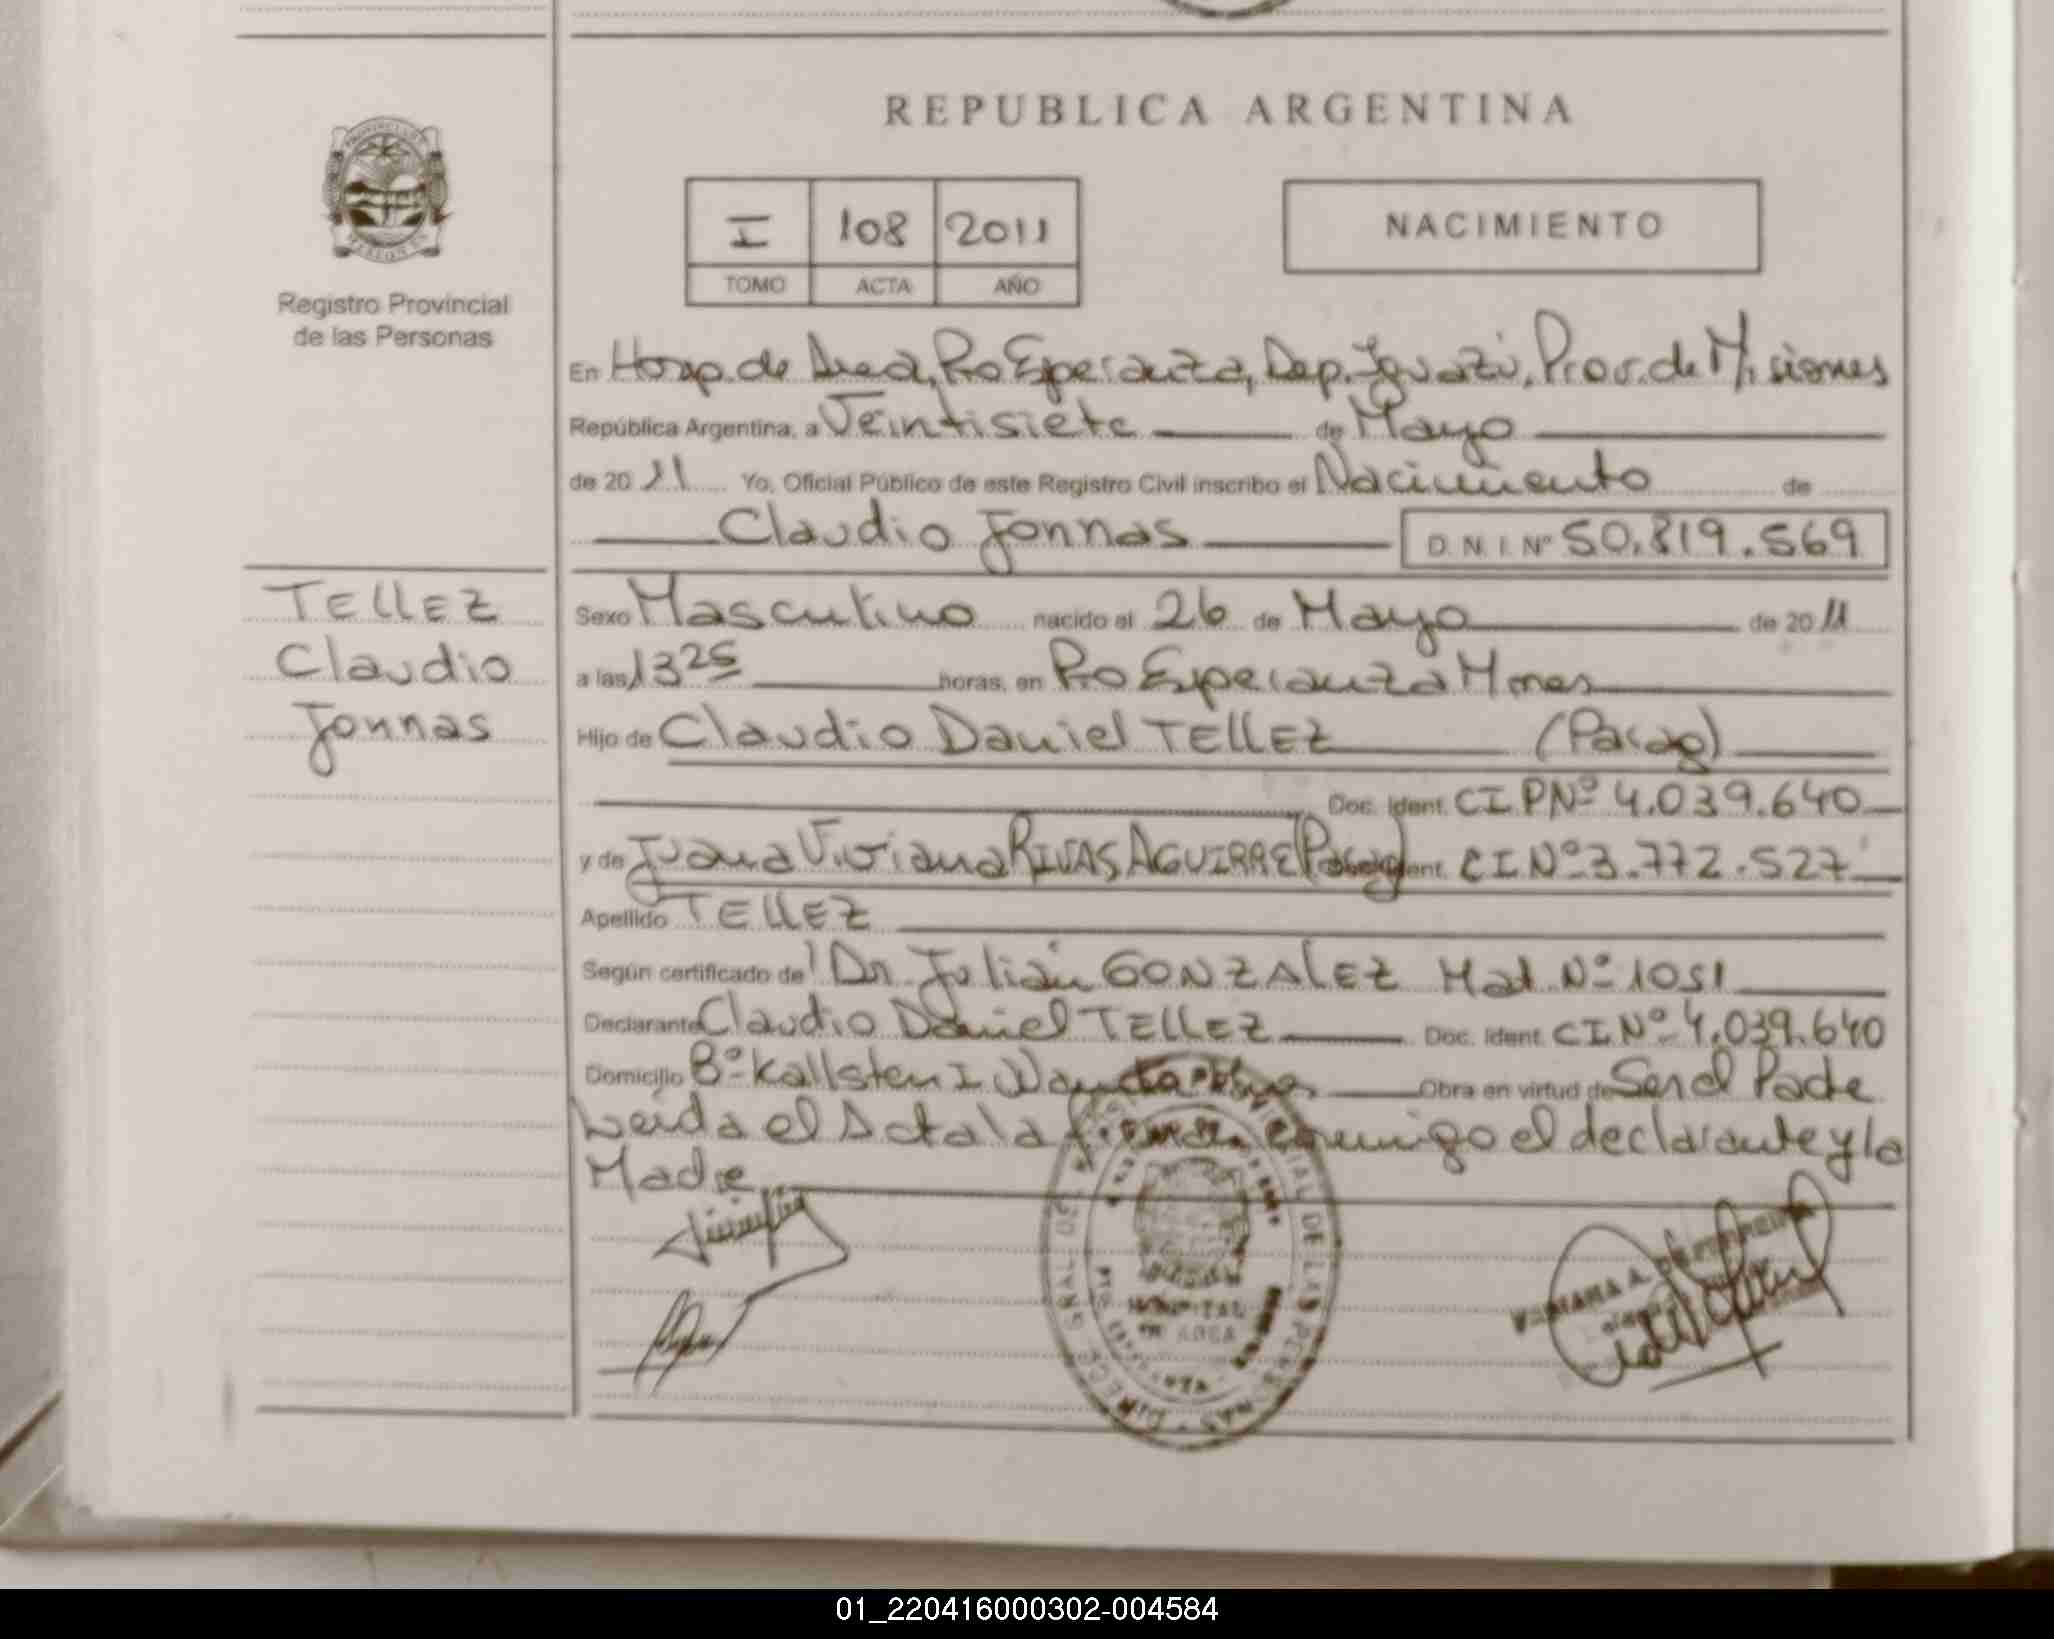 REPUBLICA ARGENTINA
I 108 2011
TOMO ACTA AÑO
NACIMIENTO
Registro Provincial
de las Personas
En Hosp. de Area, Pto Esperanza, Dep. Iguazú, Prov. de Misiones
República Argentina, a Veintisiete de Mayo
de 2011 Yo, Oficial Público de este Registro Civil inscribo el Nacimiento de
Claudio Jonnas D.N.I. Nº 50.819.569
TELLEZ
Claudio
Jonnas
Sexo Masculino nacido el 26 de Mayo de 2011
a las 13 25 horas, en Pto Esperanza Mnes
Hijo de Claudio Daniel TELLEZ (Parag)
Doc. Ident. CIPNº 4.039.640
y de Juana Viviana RIVAS AGUIRRE (Parag) Ident. CI Nº 3.772.527
Apellido TELLEZ
Según certificado de Dr. Julián GONZALEZ Mat. Nº 1051
Declarante Claudio Daniel TELLEZ Doc. Ident. CI Nº 4.039.640
Domicilio Bº Kallsten I Wanda Obra en virtud de Ser el Padre
Leída el Acta la firman conmigo el declarante y la
Madre
HOSPITAL
DE AREA
01_220416000302-004584